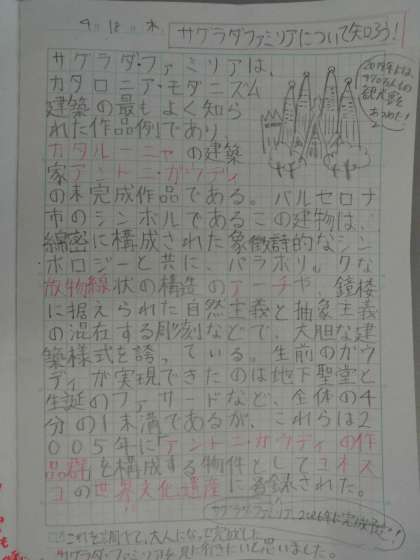 9/12 木
サグラダファミリアについて知ろう!
サグラダ・ファミリアは、
カタロニア・モダニズム
建築の最もよく知ら
れた作品例であり、
カタルーニャの建築
家アントニ・ガウディ
の未完成作品である。バルセロナ
市のシンボルであるこの建物は、
綿密に構成された象徴詩的なシン
ボロジーと共に、パラボリックな
放物線状の構造のアーチや、鐘楼
に据えられた自然主義と抽象主義
の混在する彫刻などで、大胆な建
築様式を誇っている。生前のガウ
ディが実現できたのは地下聖堂と
生誕のファサードなど、全体の4
分の1未満であるが、これらは2
005年に「アントニ・ガウディの作
品群」を構成する物件としてユネス
コの世界文化遺産に登録された。
サグラダファミリア2026年に完成予定!!
これを調べて、大人になって完成した
サグラダ・ファミリアを見に行きたいと思いました。